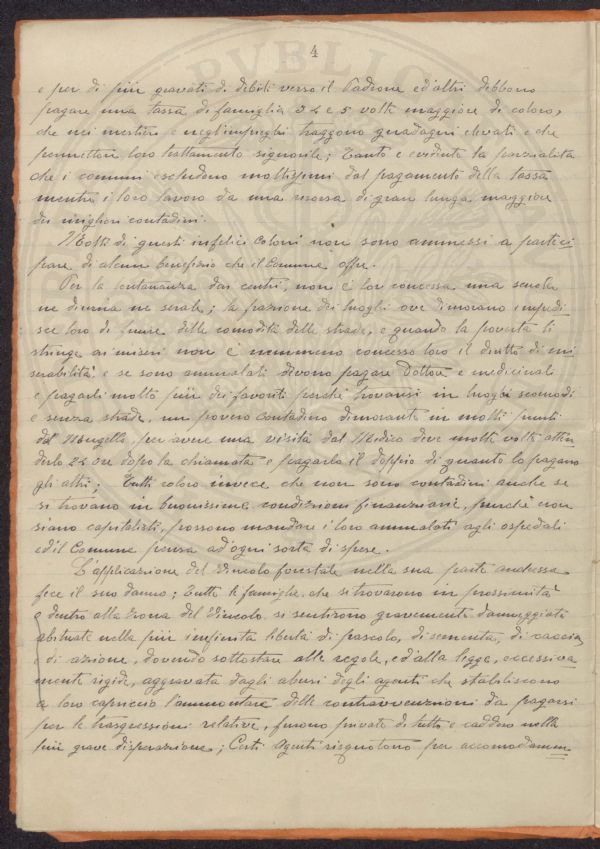 4
e per di più gravati di debiti verso il Padrone ed altri debbono
pagare una tassa di famiglia 3 4 e 5 volte maggiore di coloro,
che nei mestieri e negl'impieghi traggono guadagni elevati e che
permettono loro trattamento signorile; Tanto è evidente la parzialità
che i comuni escludono moltissimi dal pagamento della tassa
mentre i loro lavoro da una risorsa di gran lunga maggiore
dei migliori contadini.
Molti di questi infelici Coloni non sono ammessi a parteci
pare di alcun beneficio che il Comune offre.
Per la lontananza dai centri, non è lor concessa una scuola
ne diurna ne serale; la posizione dei luoghi ove dimorano impedi
sce loro di fruire delle comodità delle strade, e quando la povertà li
stringe ai miseri non è nemmeno concesso loro il diritto di mi
serabilità e se sono ammalati devono pagare Dottori e medicinali
e pagarli molto più dei favoriti perché trovansi in luoghi scomodi
e senza strade, un povero contadino dimorante in molti punti
del Mugello per avere una visita dal Medico deve molte volte atten
derlo 24 Ore dopo la chiamata e pagarlo il doppio di quanto lo pagano
gli altri; Tutti coloro invece che non sono contadini anche se
si trovano in buonissime condizioni finanziarie, purché non
siano capitalisti, possono mandare i loro ammalati agli ospedali
ed il Comune pensa ad ogni sorta di spese.
L'applicazione del Vincolo forestale nella sua parte anch'essa
fece il suo danno; Tutte le famiglie che si trovarono in prossimità
o dentro alla zona del Vincolo si sentirono gravemente danneggiate
abituate nella più infinita libertà di pascolo, di sementa, di caccia
e di azione, dovendo sottostare alle regole, ed alla legge, eccessiva
mente rigide, aggravata dagli abusi degli agenti che stabiliscono
a loro capriccio l'ammontare delle contravvenzioni da pagarsi
per le trasgressioni relative, furono private di tutto e caddero nella
più grave disperazione; Certi Agenti risquotono per accomodamen